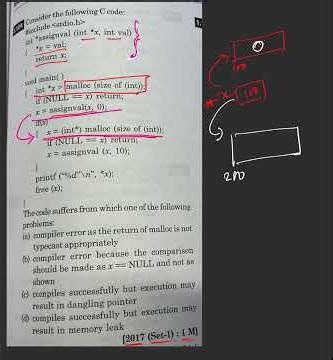 Consider the following C code:
#include <stdio.h>
int *assignval (int *x, int val)
{
*x = val;
return x;
}
void main()
{
int *x = malloc (size of (int));
if (NULL == x) return;
x = assignval(x, 0);
if(x)
{
x = (int*) malloc (size of (int));
if (NULL == x) return;
x = assignval (x, 10);
}
printf ("%d"\n", *x);
free (x);
}
The code suffers from which one of the following
problems:
(a) compiler error as the return of malloc is not
typecast appropriately
(b) compiler error because the comparison
should be made as x == NULL and not as
shown
(c) compiles successfully but execution may
result in dangling pointer
(d) compiles successfully but execution may
result in memory leak
[2017 (Set-1) : 1 M]
0
100
x
100
200